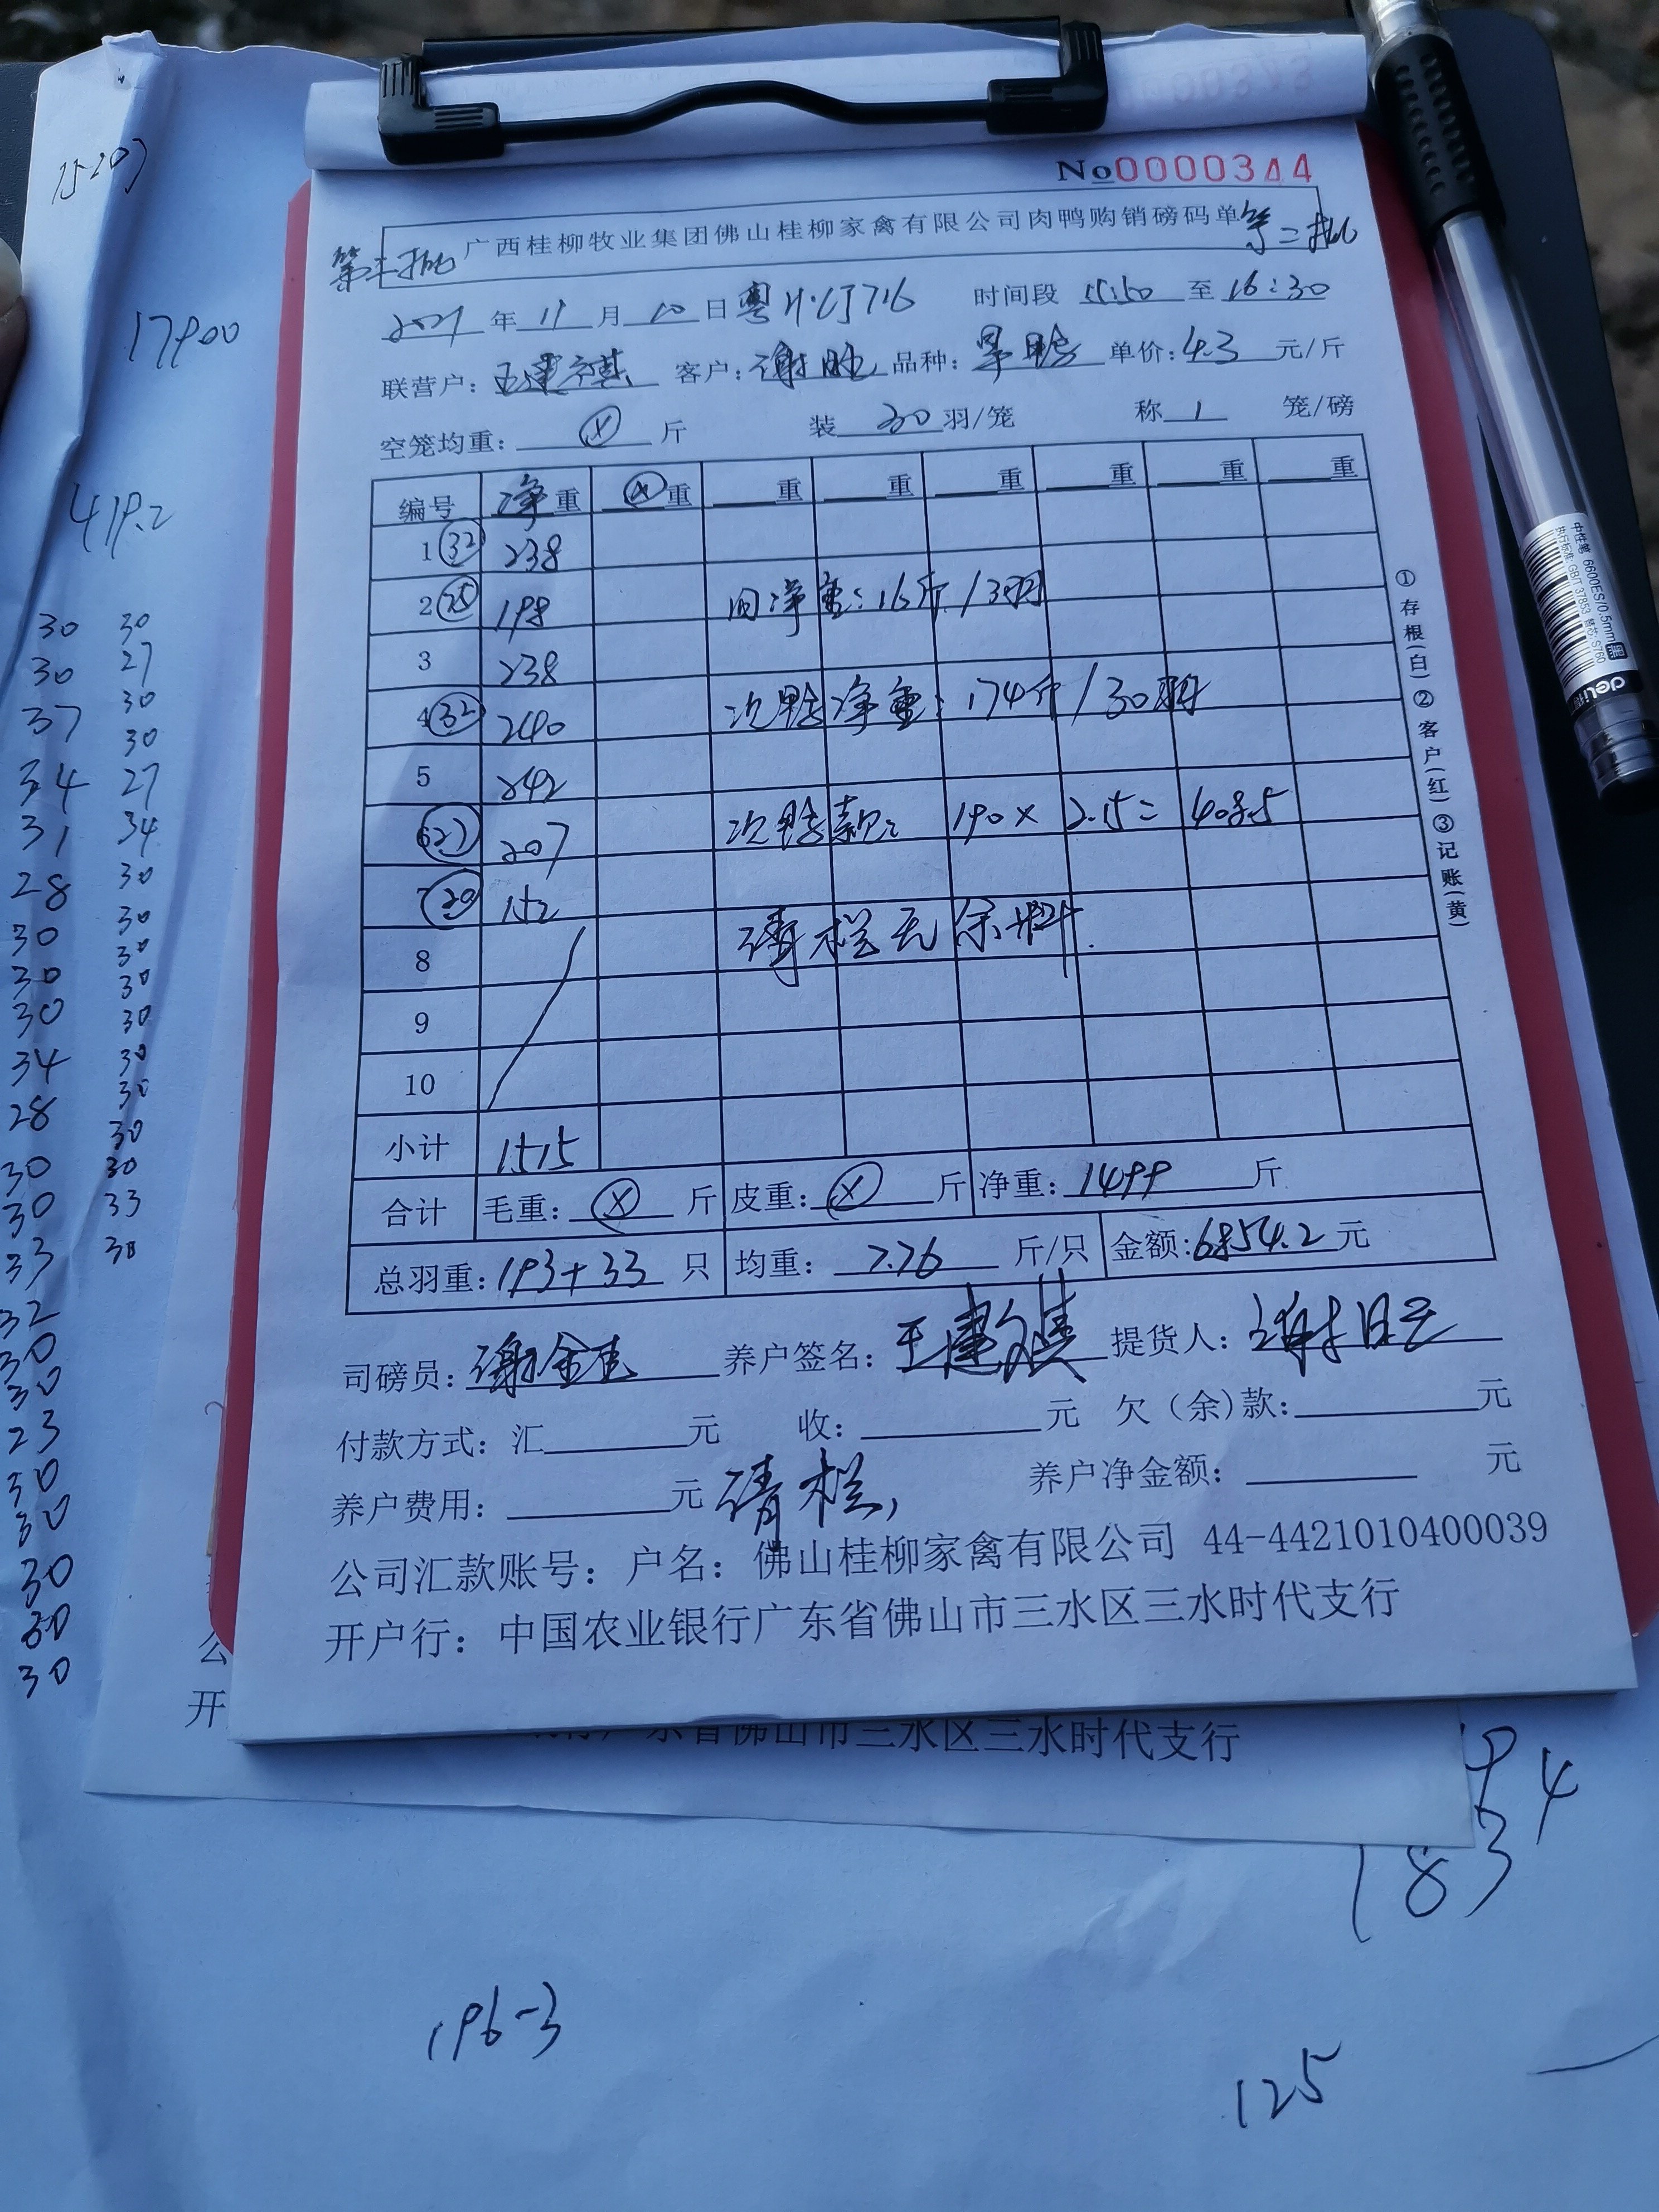 No0000344
广西桂柳牧业集团佛山桂柳家禽有限公司肉鸭购销磅码单 第二批
第二批
2021 年 11 月 10 日 时间段 15:50 至 16:30
联营户: 王建祺 客户: 谢旺 品种: 旱鸭 单价: 4.3 元/斤
空笼均重: X 斤 装 30 羽/笼 称 1 笼/磅
编号 净重 重 重 重 重 重 重 重
1 32 238
2 25 198 净重: 16斤/3羽
3 238
4 32 240 次鸭净重: 174斤/30羽
5 242
6 27 207 次鸭款: 190×2.15=408.5
7 20 152
8 清栏无余料.
9
10
小计 1515
合计 毛重: X 斤 皮重: X 斤 净重: 1499 斤
总羽重: 193+33 只 均重: 7.76 斤/只 金额: 6854.2 元
司磅员: 谢金 养户签名: 王建祺 提货人: 谢
付款方式: 汇 元 收: 元 欠(余)款: 元
养户费用: 元 清栏, 养户净金额: 元
公司汇款账号: 户名: 佛山桂柳家禽有限公司 44-4421010400039
开户行: 中国农业银行广东省佛山市三水区三水时代支行
①存根(白)②客户(红)③记账(黄)
东省佛山市三水区三水时代支行
公
开
17900
419.2
30 30
30 27
37 30
34 30
31 27
28 34
30 30
30 30
30 30
34 30
28 30
30 30
30 30
33 30
32 30
30 33
30 30
23
30
30
30
30
30
94
183
196-3
125
中性笔 6600ES/0.5mm 黑
执行标准: GB/T 37853 替芯: S760
deli